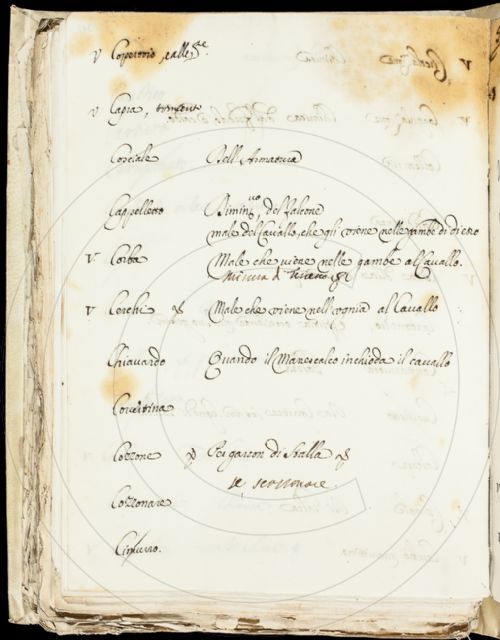 v Coperoio
v Capra, tormento
Cosciale Dell'Armatura
Cappelletto Dimin.vo del falcone
male del Cavallo, che gli viene nelle gambe di dietro
v Corba Male che viene nelle gambe al Cavallo.
Misura di
v Cerchi Male che viene nell'vgnia al Cavallo
Chiauardo Quando il Manescalco inchioda il cavallo
Covertina
Cozzone Per garzon di stalla
e scozzonare.
Cozzonare
Cimurro.